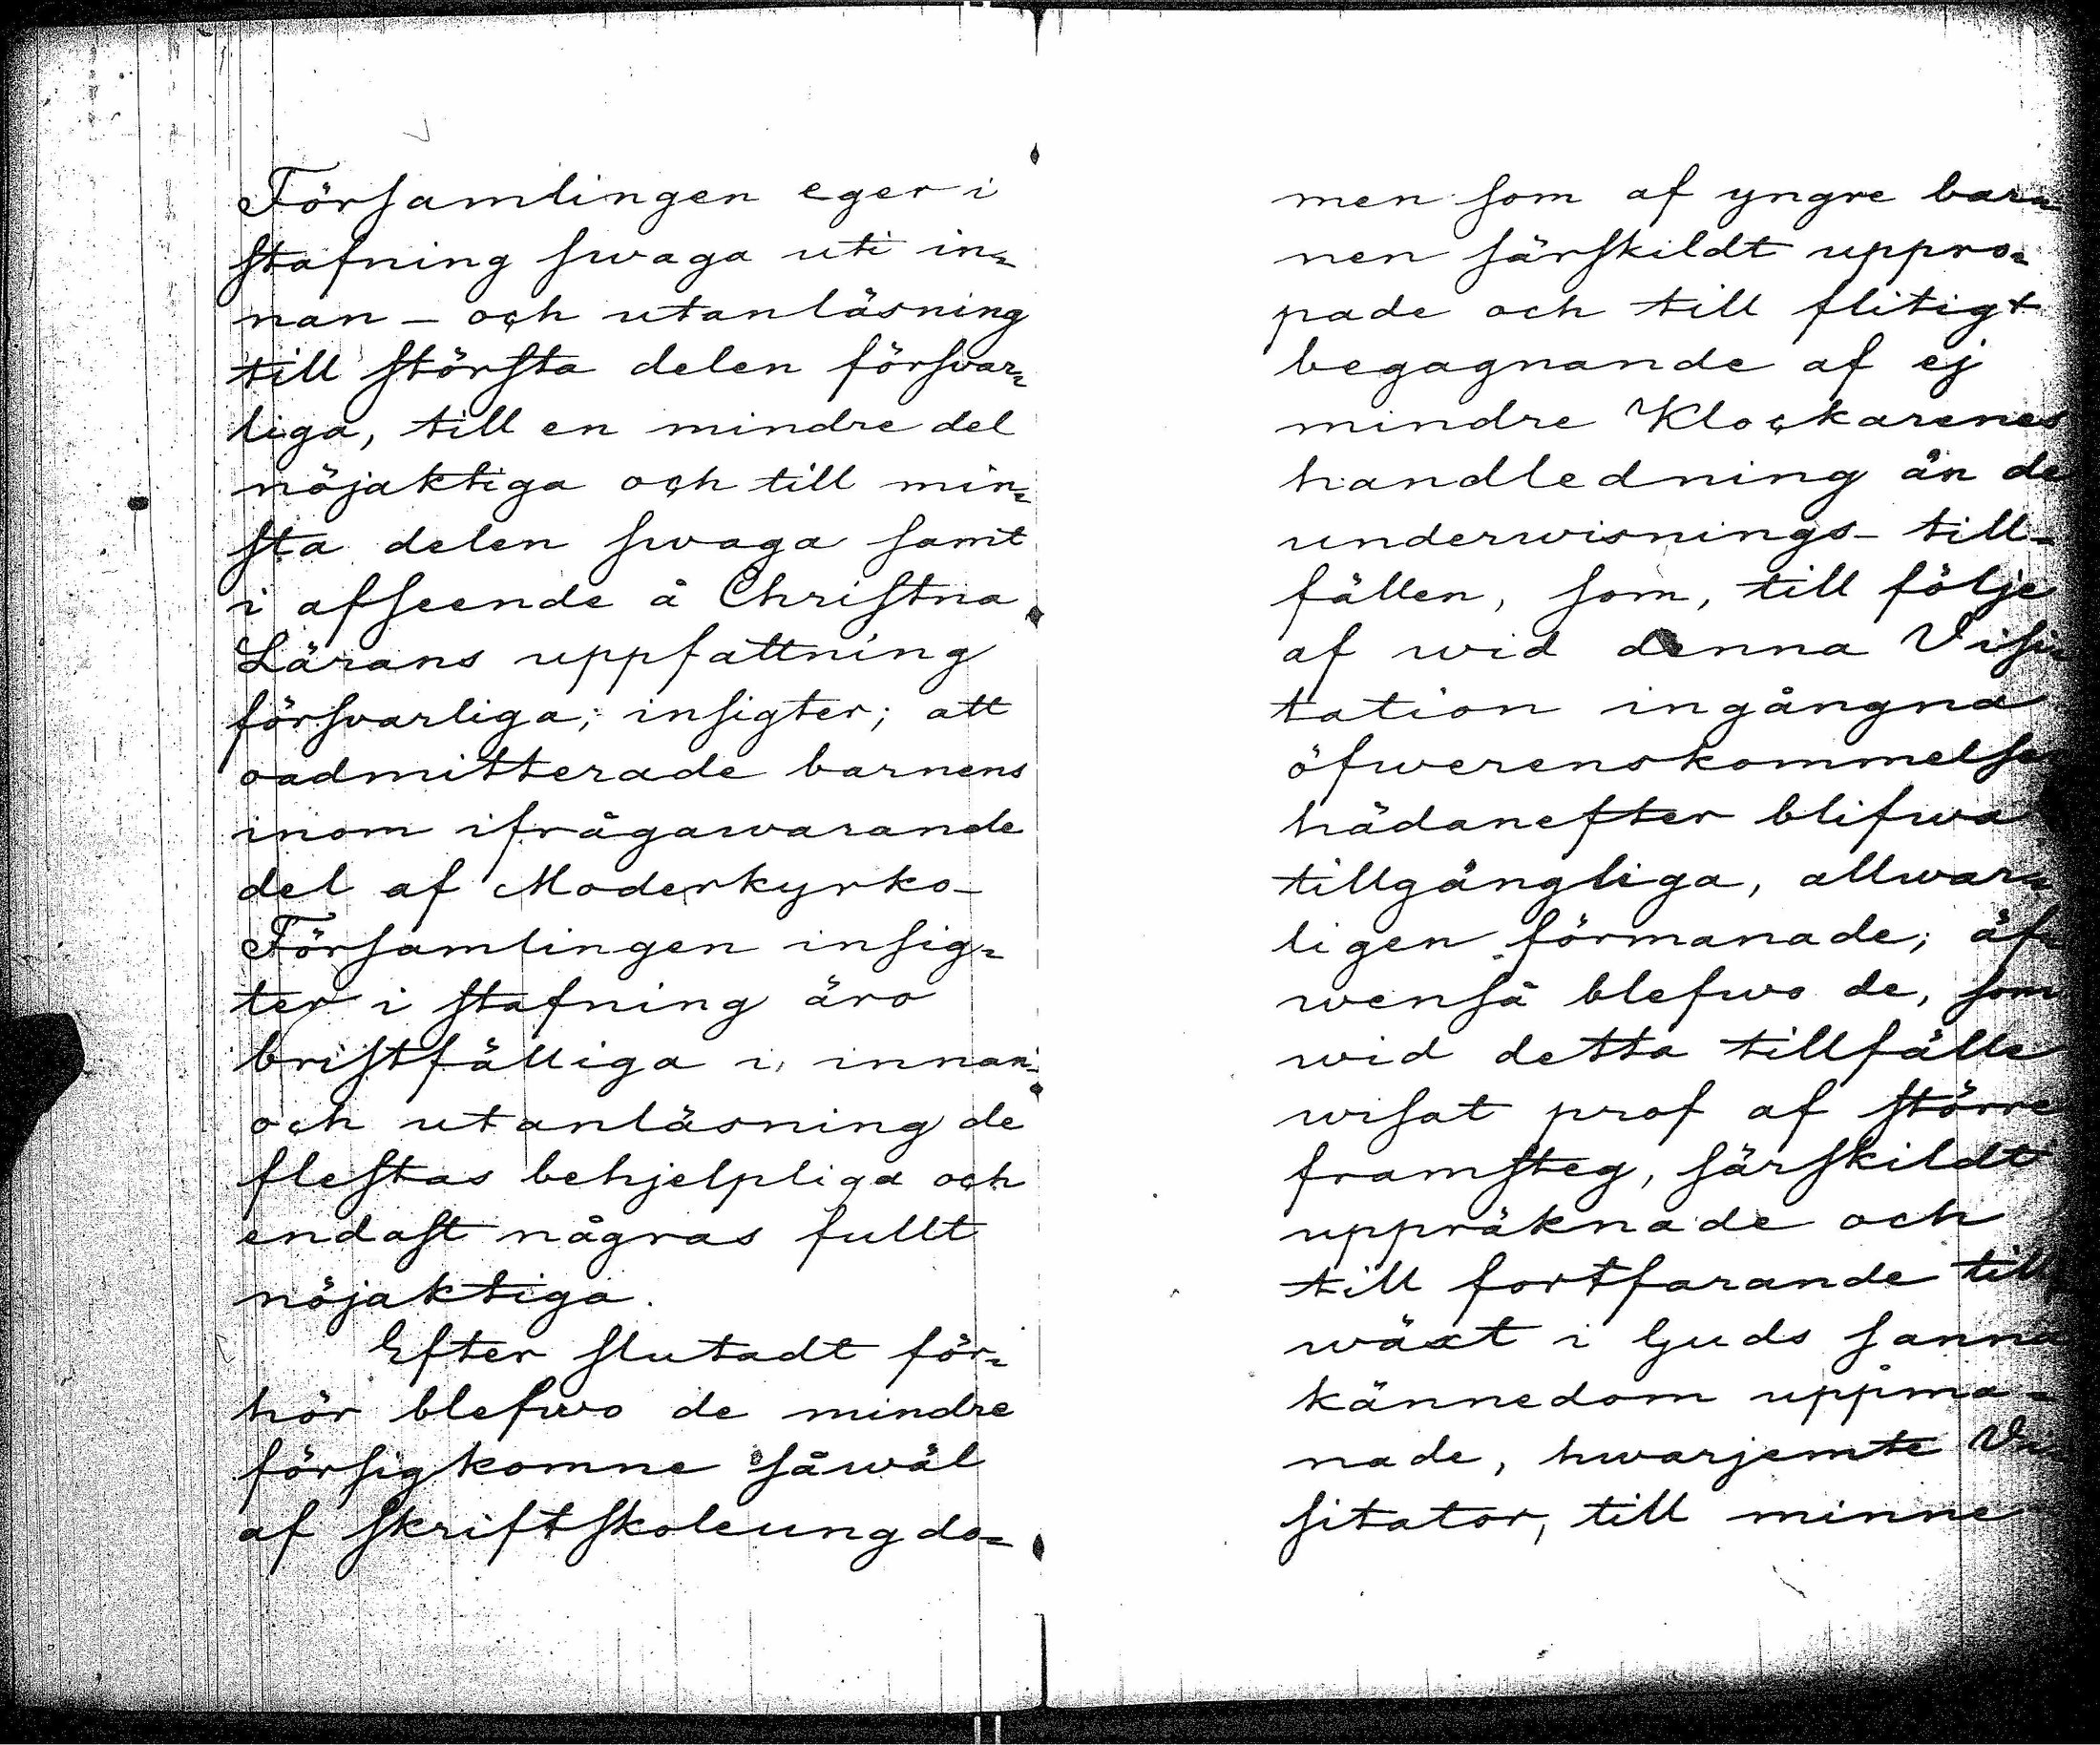 Församlingen eger i
stafning swaga uti in=
nan - och utanläsning
till största delen försvar=
liga, till en mindre del
nöjaktiga och till min=
sta delen swaga samt
i afseende å Christna
Lärans uppfattning
försvarliga; insigter; att
oadmitterade barnens
inom ifrågawarande
del af Moderkyrko-
Församlingen insig=
ter i stafning äro
bristfälliga i, innan-
och utanläsning de
flestas behjelpliga och
endast några fullt
nöjaktiga.
Efter slutadt för=
hör blefwo de mindre
försigkomne såwäl
af skriftskoleungdo=
men som af yngre bar=
nen särskildt uppro=
pade och till flitigt
begagnande af ej
mindre Klockarenes
handledning än de
underwisnings- till-
fällen, som, till följe
af wid denna Visi=
tation ingångna
öfwerenskommelser
hädanefter blifwa
tillgängliga, allwar=
ligen förmanade; äf=
wenså blefwo de, som
wid detta tillfälle
wisat prof af större
framsteg, särskildt
uppräknade och
till fortfarande till
wäxt i Guds sanna
kännedom uppma=
nade, hwarjemte Vi=
sitator, till minne